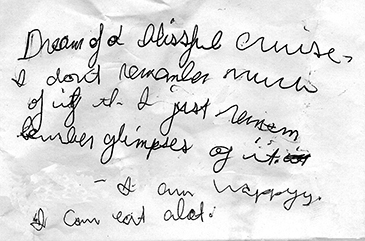 Dream of a blissful cruise -
I don't remember much
of it, I just remem
ber glimpses of it.
- I am happy.
I can eat alot.